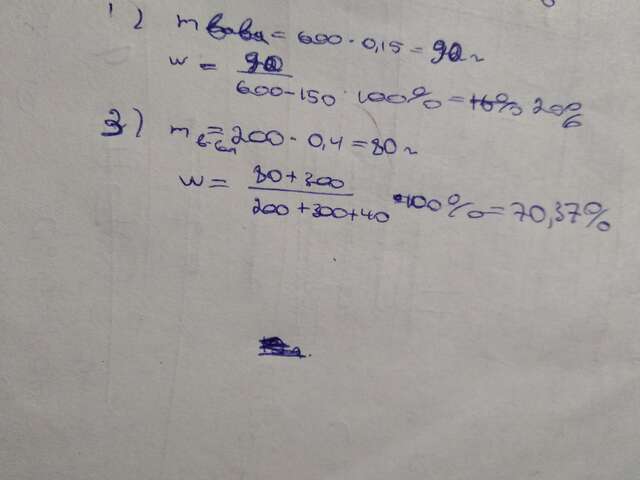 1) m в-ва = 600 · 0,15 = 90 г
w = 90 / 600-150 · 100% = 20%
3) m в-ва = 200 · 0,4 = 80 г
w = 80+300 / 200+300+40 · 100% = 70,37%